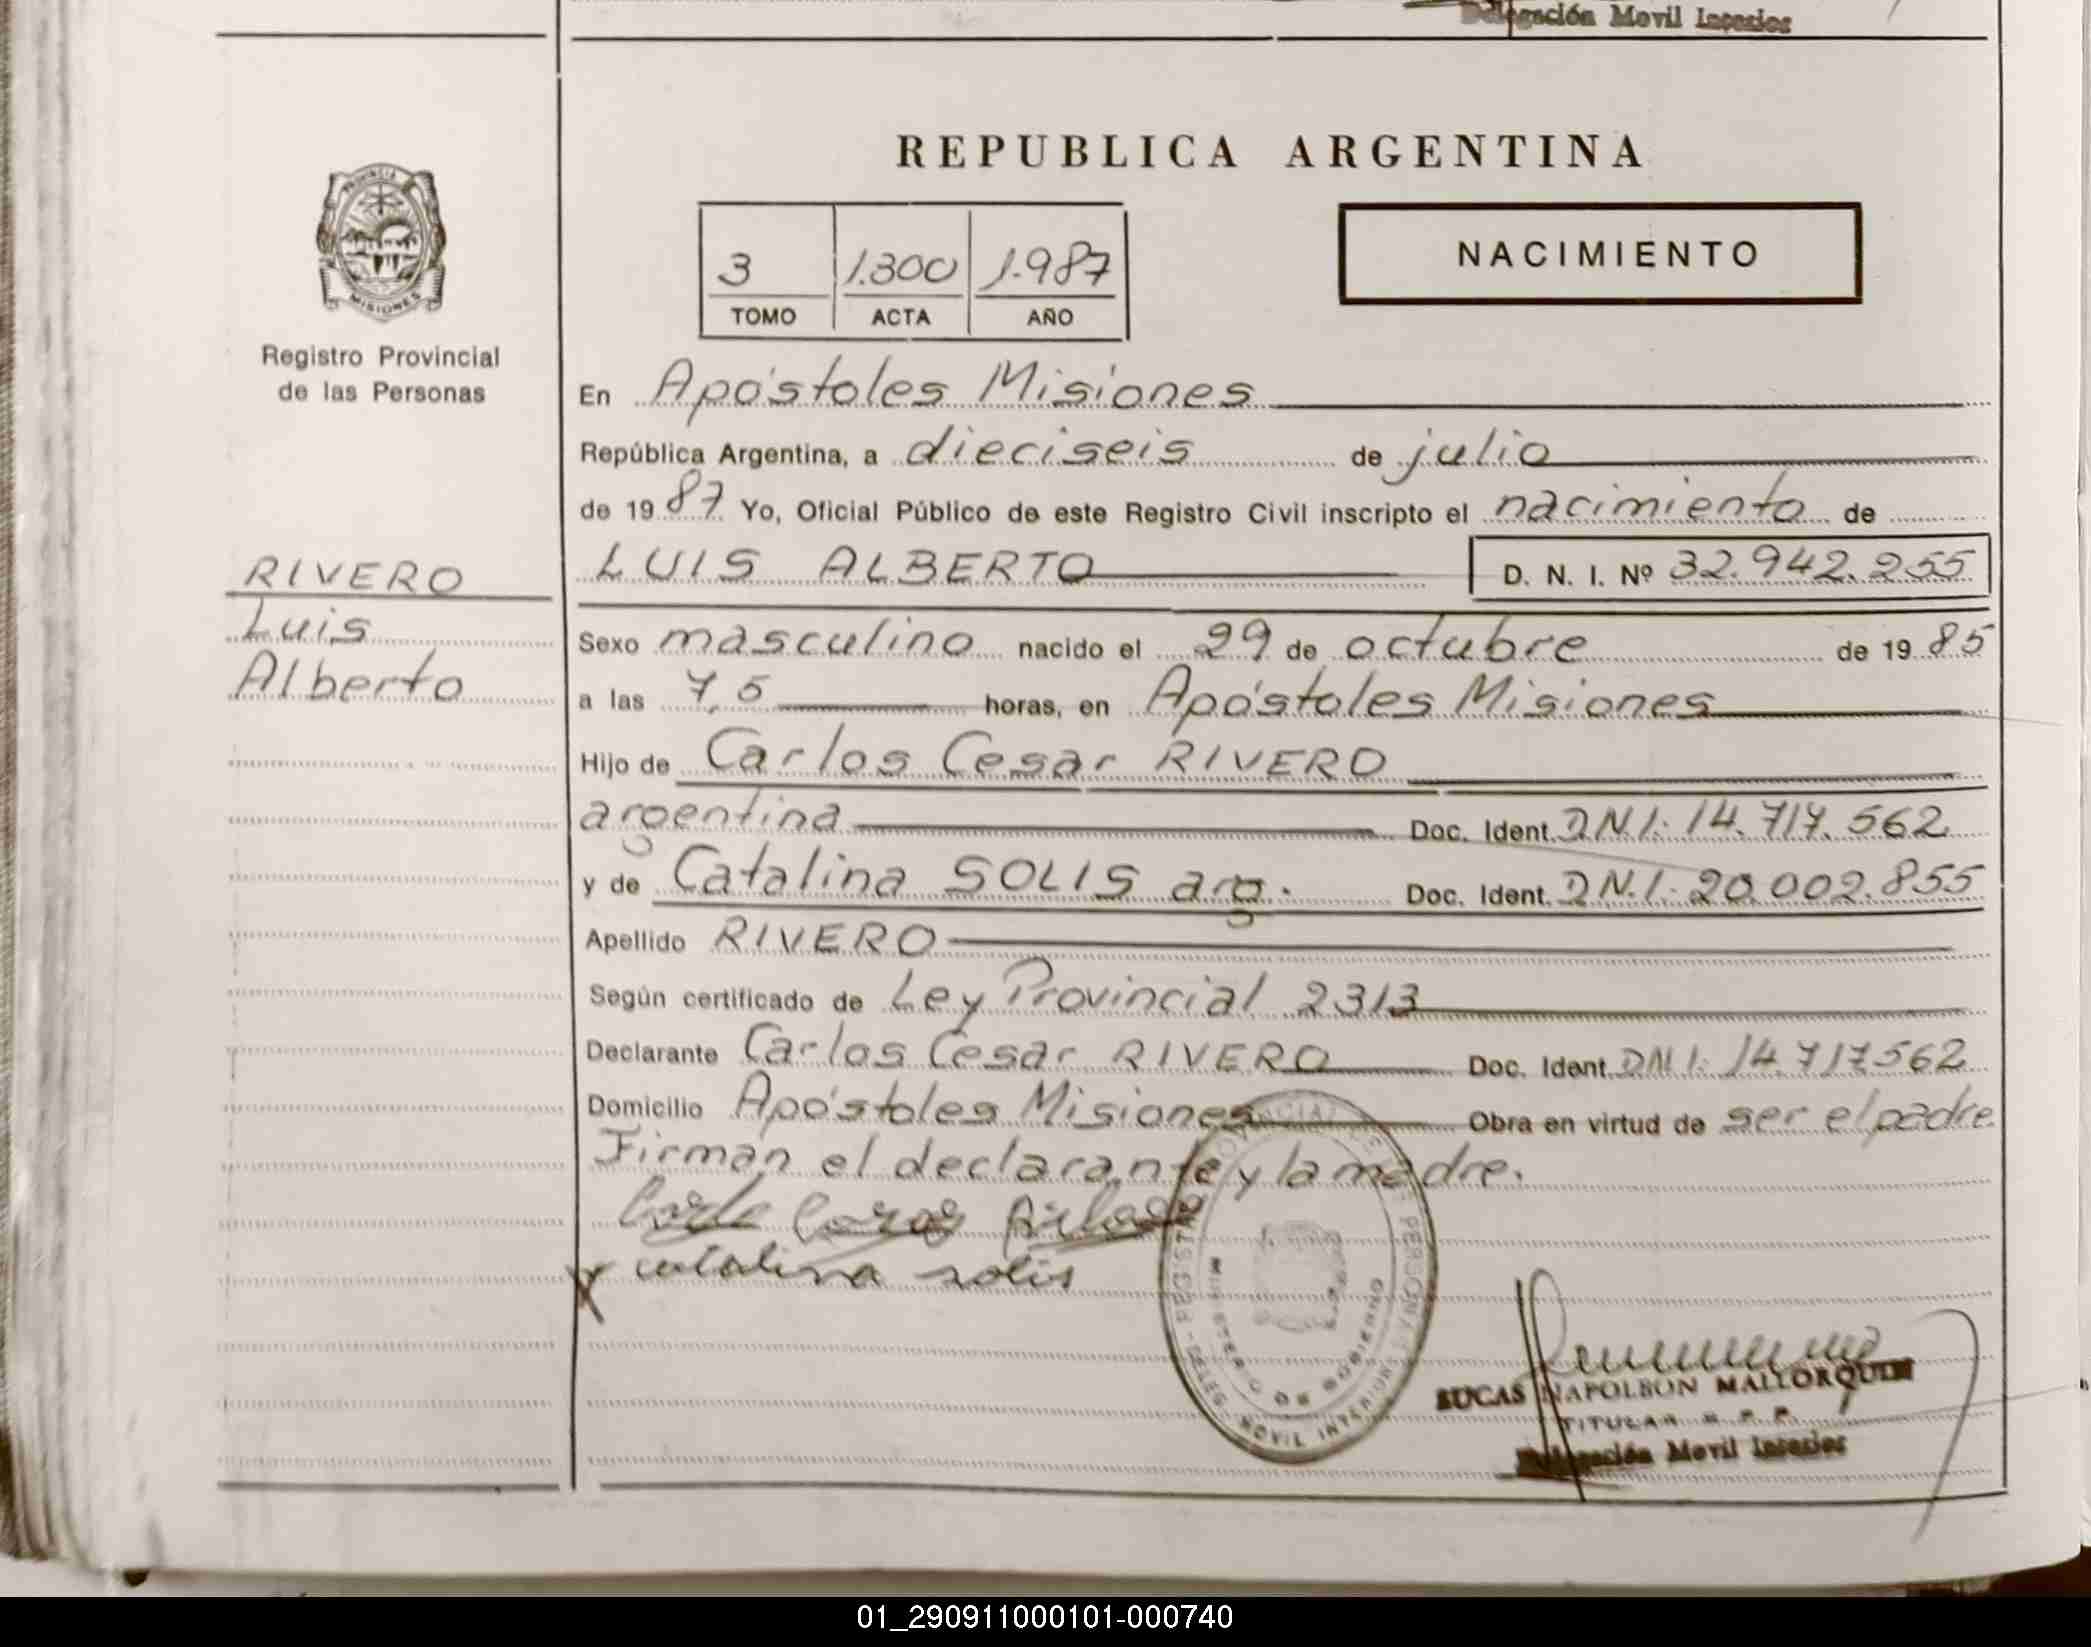 Delegación Movil Interior
REPUBLICA ARGENTINA
PROVINCIA
MISIONES
Registro Provincial
de las Personas
3 1.300 1.987
TOMO ACTA AÑO
NACIMIENTO
En Apóstoles Misiones
República Argentina, a dieciseis de julio
de 1987 Yo, Oficial Público de este Registro Civil inscripto el nacimiento de
RIVERO
Luis
Alberto
LUIS ALBERTO D. N. I. Nº 32.942.255
Sexo masculino nacido el 29 de octubre de 1985
a las 7,5 horas, en Apóstoles Misiones
Hijo de Carlos Cesar RIVERO
argentina Doc. Ident. DNI: 14.717.562
y de Catalina SOLIS arg. Doc. Ident. DN.I. 20.002.855
Apellido RIVERO
Según certificado de Ley Provincial 2313
Declarante Carlos Cesar RIVERO Doc. Ident. DNI: 14.717562
Domicilio Apóstoles Misiones Obra en virtud de ser el padre
Firman el declarante y la madre.
X catalina solis
MINISTERIO DE GOBIERNO
MOVIL INTERIOR
NAPOLEON MALLORQUIN
TITULAR R. P. P.
Delegación Movil Interior
01_290911000101-000740